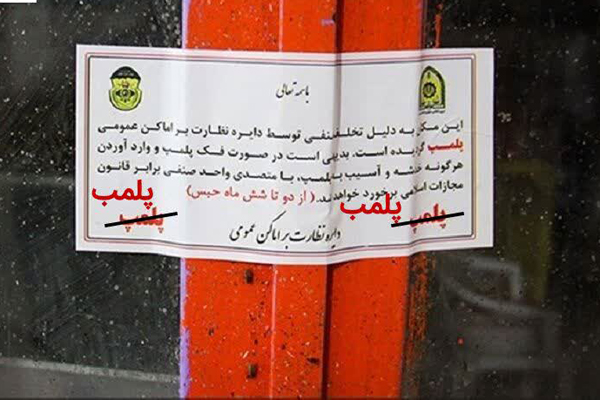 باسمه تعالی
این مکان به دلیل تخلف صنفی توسط دایره نظارت بر اماکن عمومی
پلمپ گردیده است. بدیهی است در صورت فک پلمپ و وارد آوردن
هرگونه خدشه و آسیب به پلمپ، با متصدی واحد صنفی برابر قانون
مجازات اسلامی برخورد خواهد شد. (از دو تا شش ماه حبس)
پلمب پلمب
پلمپ پلمپ
دایره نظارت بر اماکن عمومی